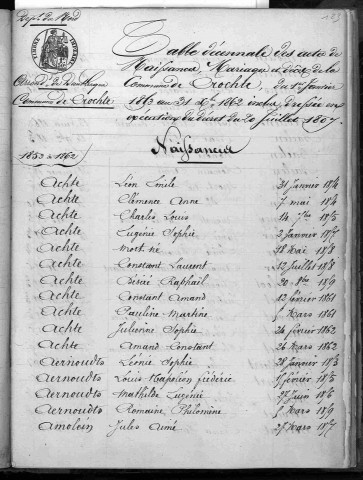 Dépt. du Nord
Arrond. de Dunkerque
Commune de Crochte
Table décennale des actes de
Naissances, Mariages et décès de la
Commune de Crochte, du 1er Janvier
1853 au 31 Xbre 1862 inclus, dressée en
exécution du décret du 20 Juillet 1807.
Naissances
1853 à 1862
Achte Léon Emile 31 Janvier 1854
Achte Clémence Anne 7 mai 1854
Achte Charles Louis 14 7bre 1855
Achte Eugénie Sophie 2 Janvier 1857
Achte Mort-né 28 Mai 1858
Achte Constant Laurent 12 Juillet 1858
Achte Désiré Raphaël 20 8bre 1859
Achte Constant Amand 12 février 1861
Achte Pauline Martine Mars 1861
Achte Julienne Sophie 26 février 1862
Achte Amand Constant 26 Mars 1862
Aernoudts Léonie Sophie 28 Janvier 1853
Aernoudts Louis Napoléon frédéric février 1855
Aernoudts Mathilde Eugénie 27 Juin 1856
Aernoudts Romaine Philomène Mars 1859
Amoloin Jules Aimé 27 Mars 1857